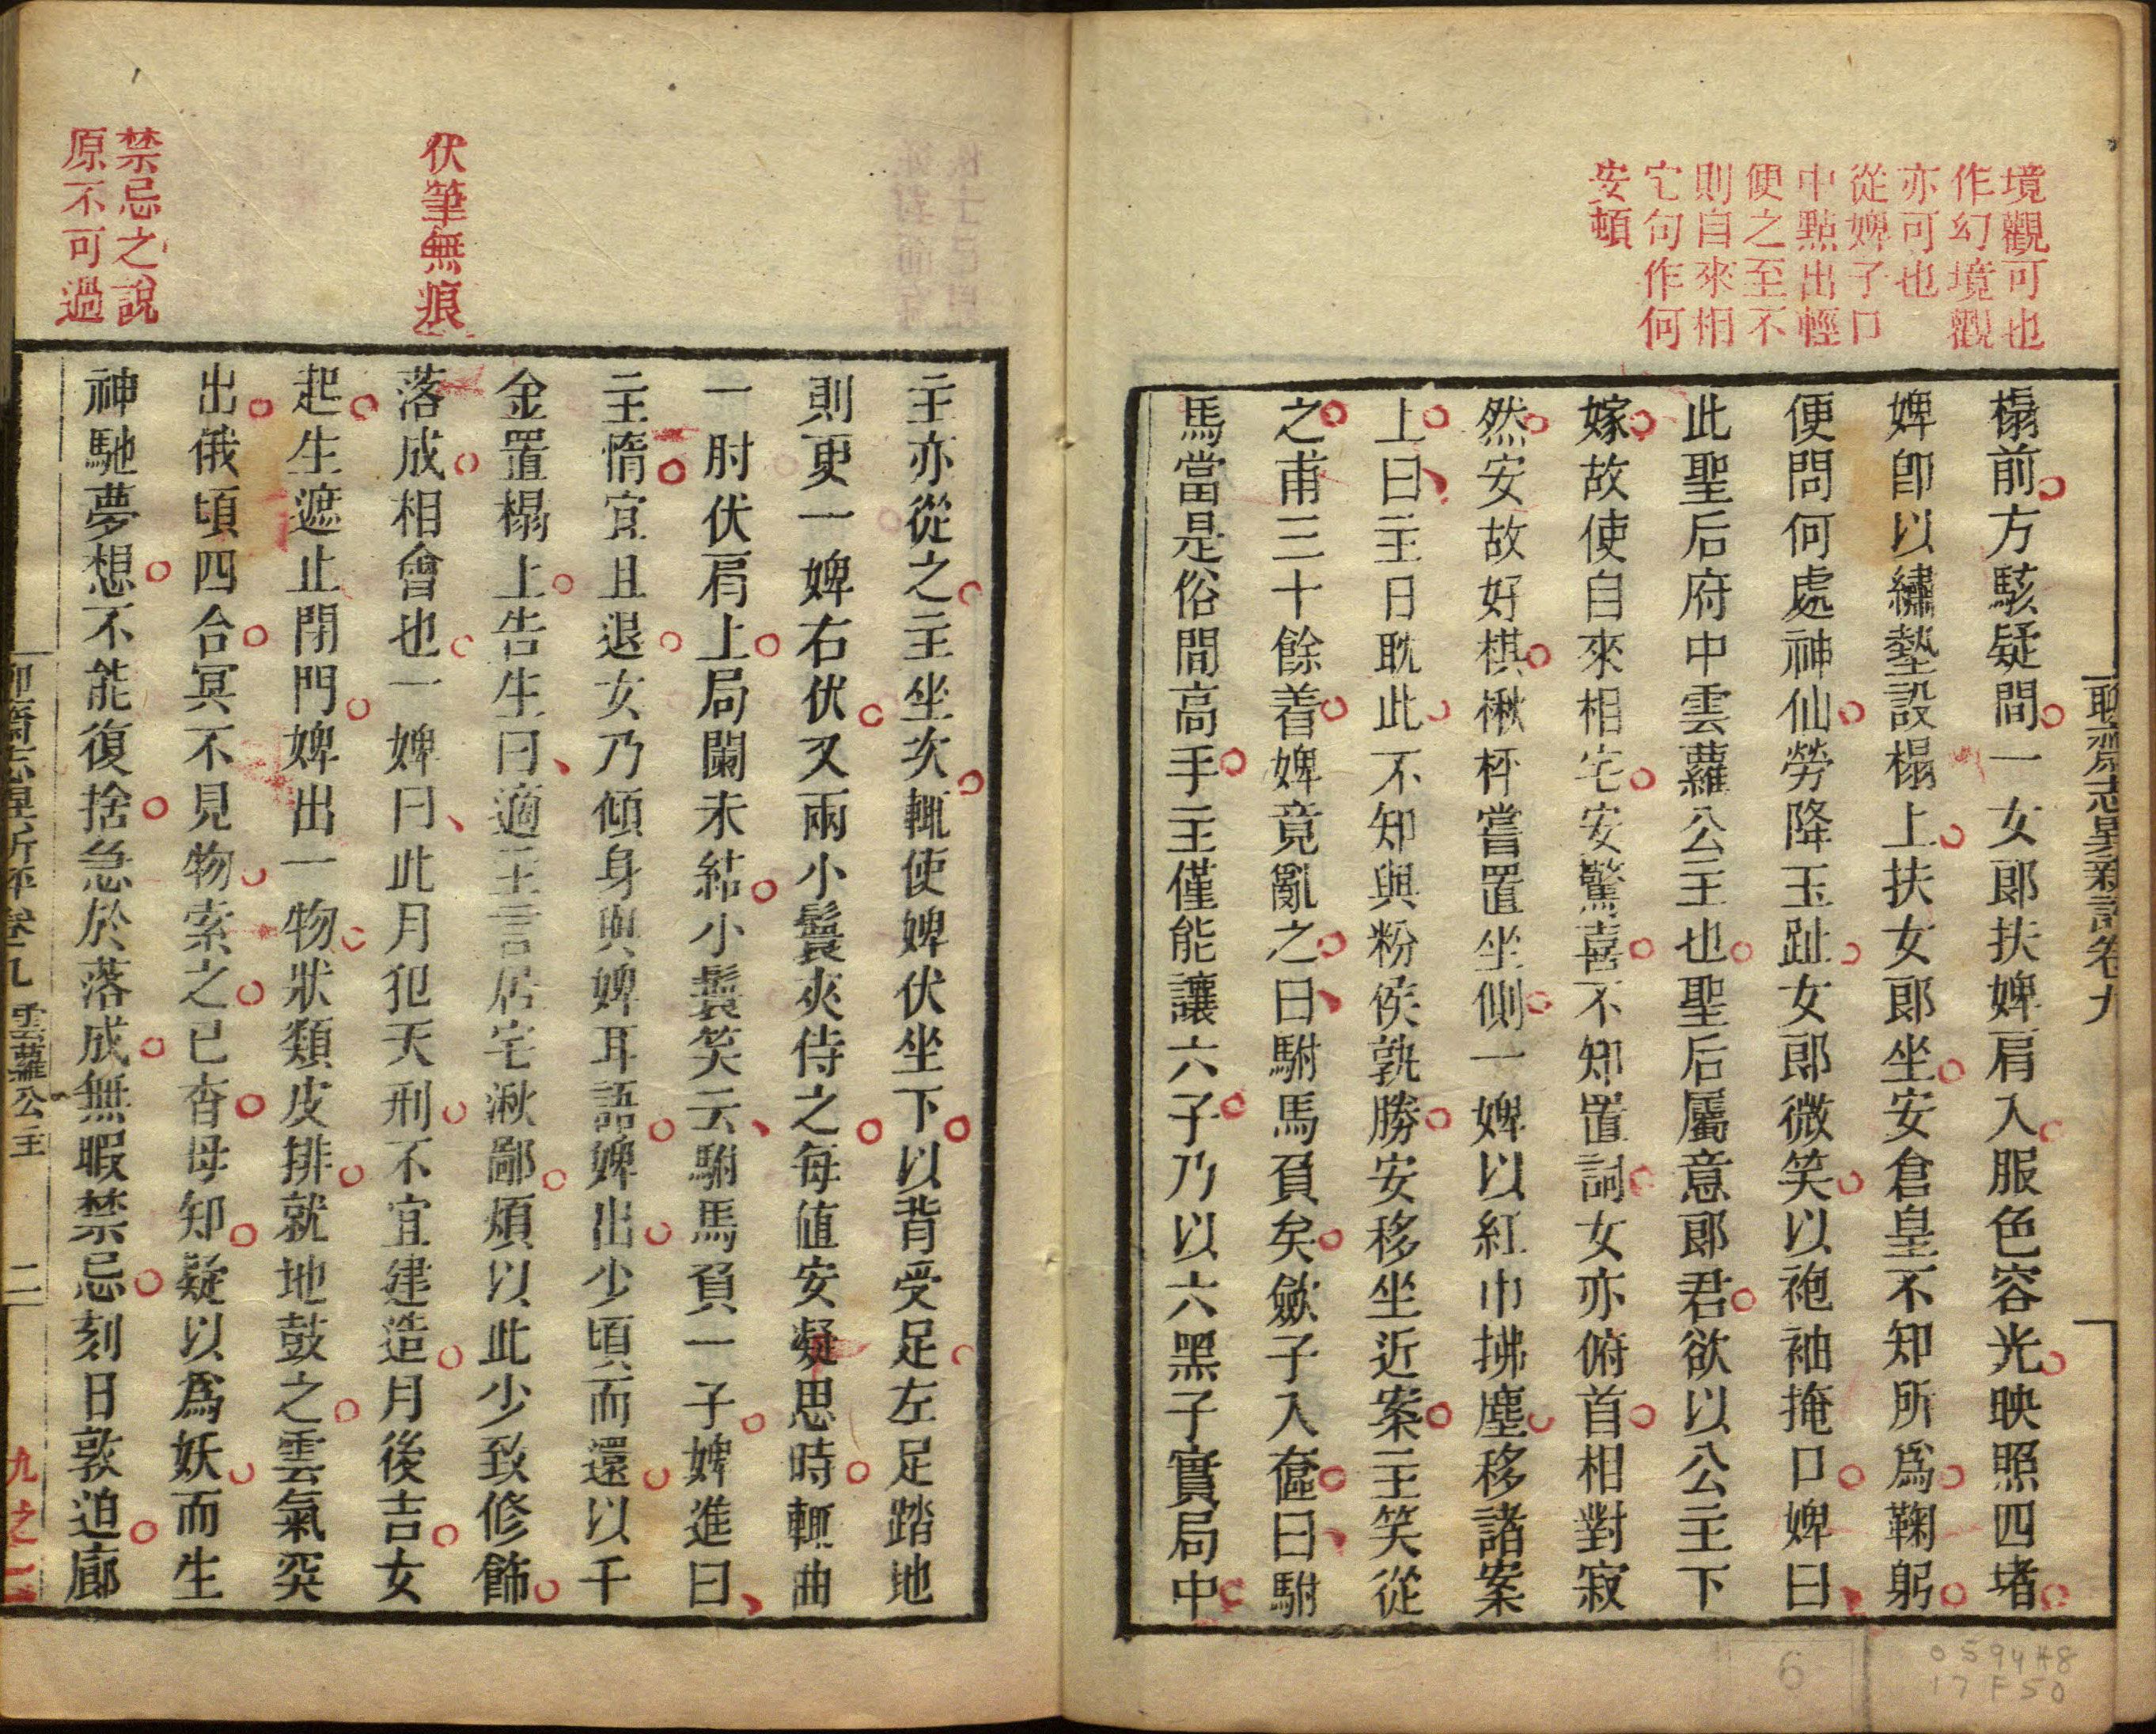 境觀可也
作幻境觀
亦可也
從婢子口
中點出輕
便之至不
則自來相
宅句作何
安頓
聊齋志異新評卷九
榻前方駭疑間一女郎扶婢肩入服色容光映照四堵
婢卽以繡墊設榻上扶女郎坐安倉皇不知所爲鞠躬
便問何處神仙勞降玉趾女郎微笑以袍袖掩口婢曰
此聖后府中雲蘿公主也聖后屬意郎君欲以公主下
嫁故使自來相宅安驚喜不知置詞女亦俯首相對寂
然安故好棋楸枰嘗置坐側一婢以紅巾拂塵移諸案
上曰主日耽此不知與粉侯孰勝安移坐近案主笑從
之甫三十餘着婢竟亂之曰駙馬負矣斂子入奩曰駙
馬當是俗間高手主僅能讓六子乃以六黑子實局中
伏筆無痕
禁忌之說
原不可過
主亦從之主坐次輒使婢伏坐下以背受足左足踏地
則更一婢右伏又兩小鬟夾侍之每值安凝思時輒曲
一肘伏肩上局闌未結小鬟笑云駙馬負一子婢進曰
主惰宜且退女乃傾身與婢耳語婢出少頃而還以千
金置榻上告生曰適主言居宅湫鄙煩以此少致修飾
落成相會也一婢曰此月犯天刑不宜建造月後吉女
起生遮止閉門婢出一物狀類皮排就地鼓之雲氣突
出俄頃四合冥不見物索之已杳母知疑以爲妖而生
神馳夢想不能復捨急於落成無暇禁忌刻日敦迫廊
聊齋志異新評卷九 雲蘿公主 二
九之二
6
059448
17F50